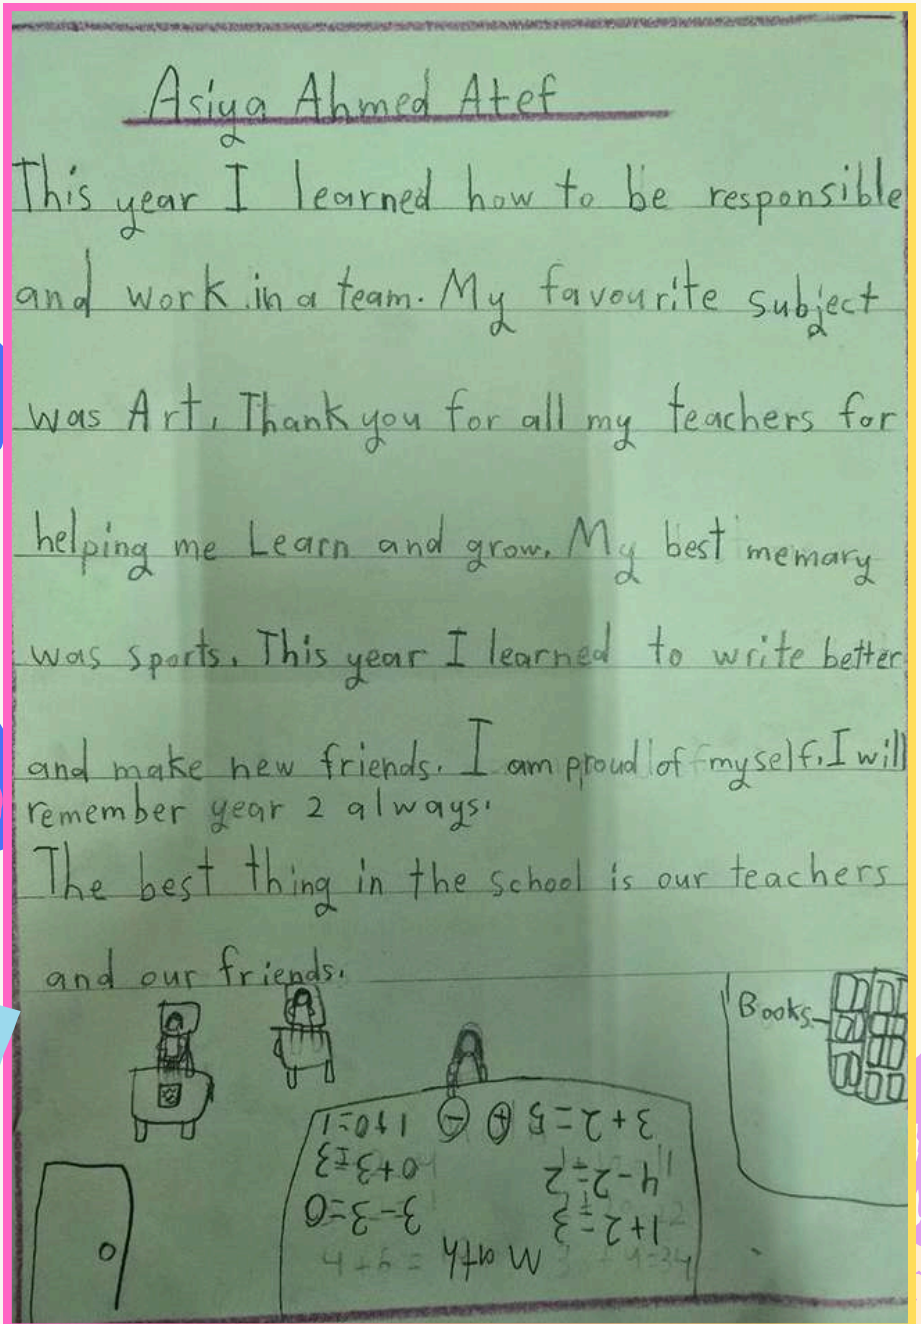 Asiya Ahmed Atef
This year I learned how to be responsible
and work in a team. My favourite subject
was Art. Thank you for all my teachers for
helping me Learn and grow. My best memary
was sports. This year I learned to write better
and make new friends. I am proud of myself. I will
remember year 2 always.
The best thing in the school is our teachers
and our friends.
Books
Math
1+2=3 3-3=0
4-2=2 0+3=3
3+2=5 + - 1+0=1